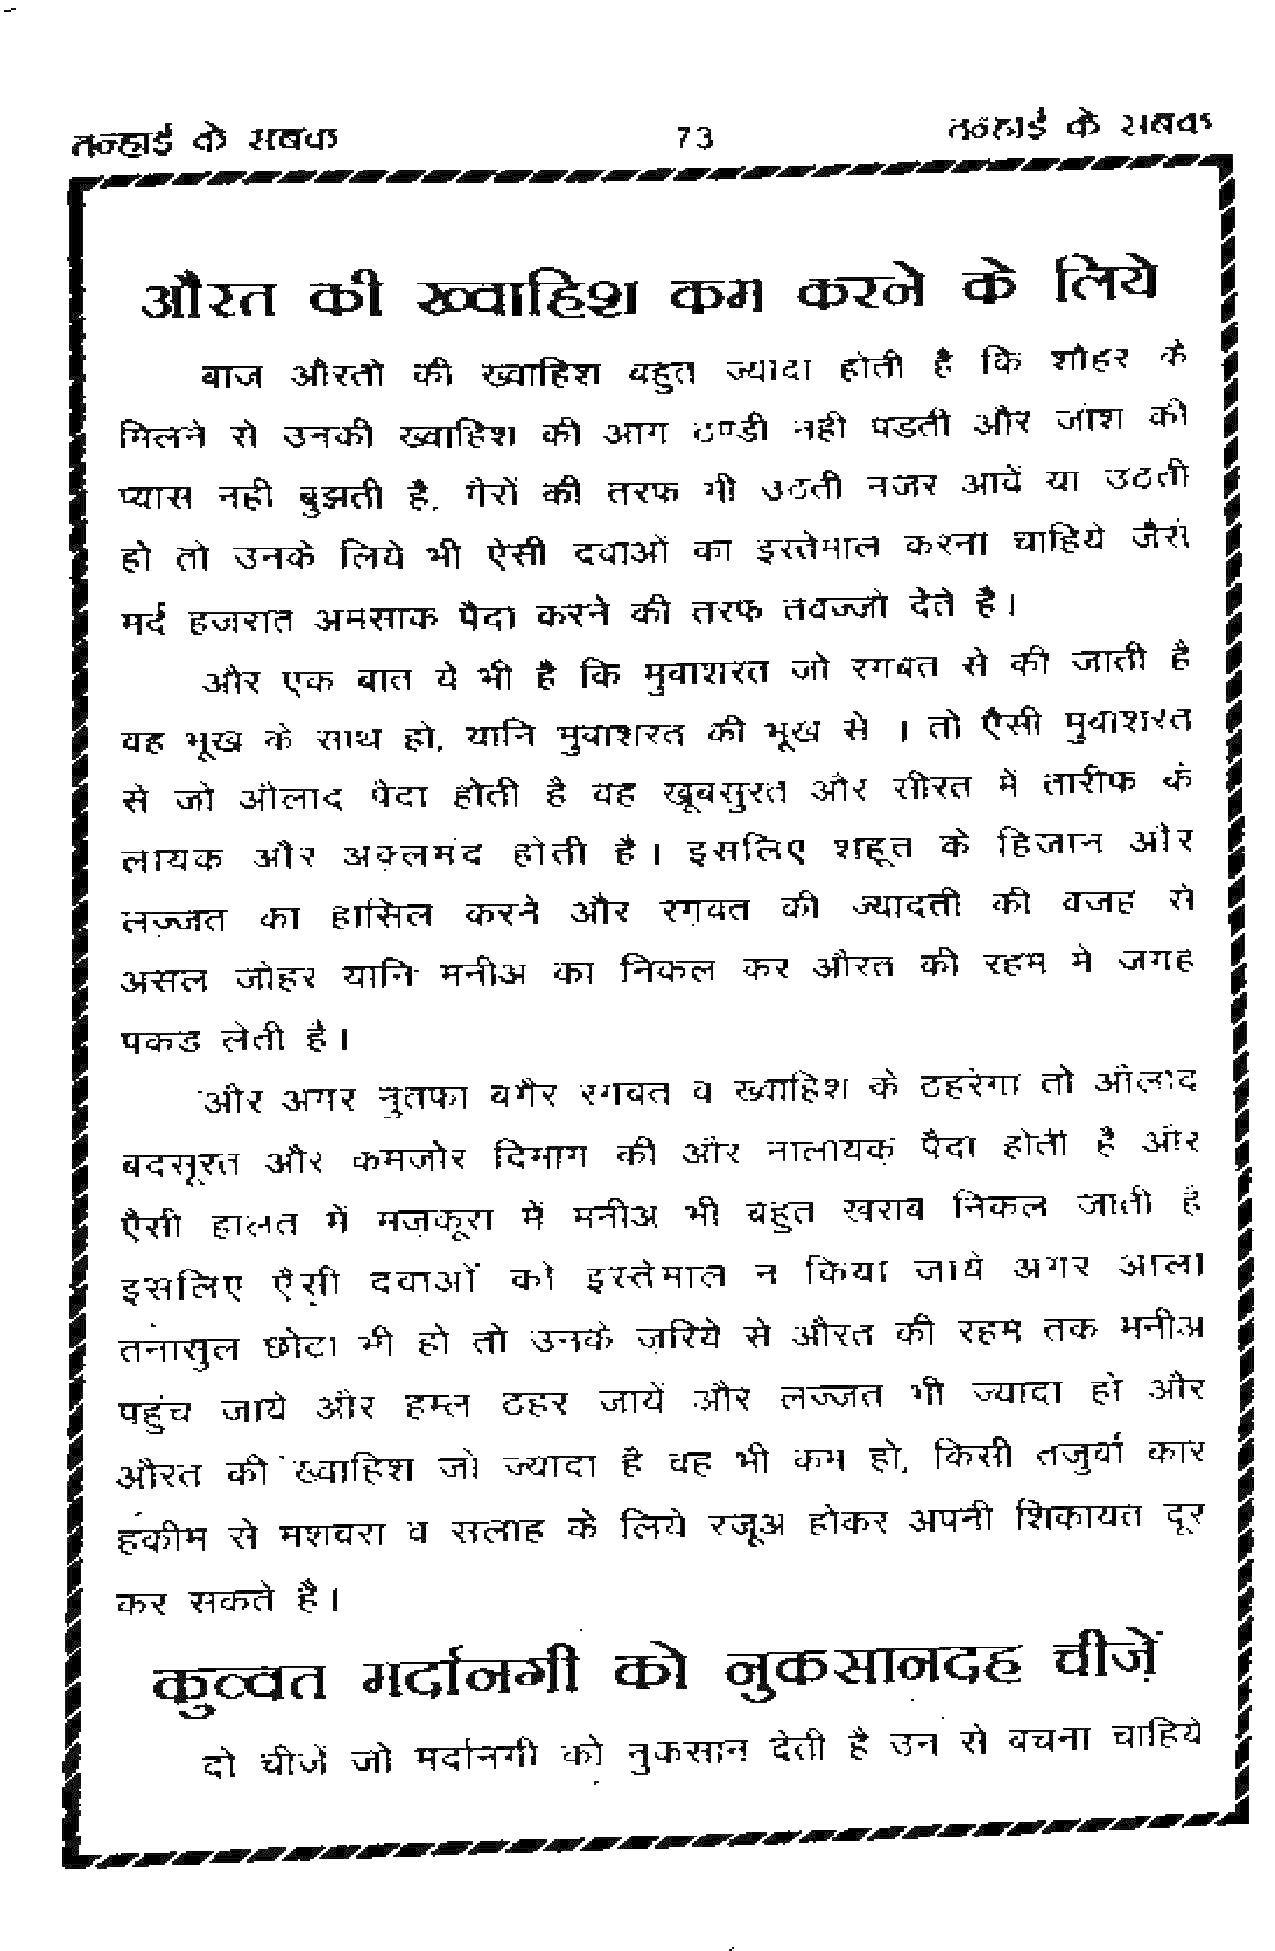 तन्हाई के सबक 73 तन्हाई के सबक
औरत की ख्वाहिश कम करने के लिये
बाज औरतो की ख्वाहिश बहुत ज्यादा होती है कि शौहर के
मिलने से उनकी ख्वाहिश की आग ठण्डी नही पडती और जोश की
प्यास नही बुझती है, गैरों की तरफ भी उठती नजर आयें या उठती
हो तो उनके लिये भी ऐसी दवाओं का इस्तेमाल करना चाहिये जैसे
मर्द हजरात अमसाक पैदा करने की तरफ तवज्जो देते है।
और एक बात ये भी है कि मुवाशरत जो रगबत से की जाती है
वह भूख के साथ हो, यानि मुवाशरत की भूख से । तो ऐसी मुवाशरत
से जो औलाद पैदा होती है वह खूबसुरत और सीरत में तारीफ के
लायक और अक्लमंद होती है। इसलिए शहूत के हिजान और
लज्जत का हासिल करने और रगवत की ज्यादती की वजह से
असल जोहर यानि मनीअ का निकल कर औरत की रहम मे जगह
पकड लेती है।
और अगर नुतफा बगैर रगबत व ख्वाहिश के ठहरेगा तो औलाद
बदसूरत और कमजोर दिमाग की और नालायक पैदा होती है और
ऐसी हालत में मज़कूरा में मनीअ भी बहुत खराब निकल जाती है
इसलिए ऐसी दवाओं को इस्तेमाल न किया जाये अगर आला
तनासुल छोटा भी हो तो उनके ज़रिये से औरत की रहम तक मनीअ
पहुंच जाये और हम्ल ठहर जायें और लज्जत भी ज्यादा हो और
औरत की ख्वाहिश जो ज्यादा है वह भी कम हो, किसी तजुर्वा कार
हकीम से मशवरा व सलाह के लिये रजूअ होकर अपनी शिकायत दूर
कर सकते है।
कुव्वत मर्दानगी को नुकसानदह चीज़ें
दो चीजें जो मर्दानगी को नुकसान देती है उन से बचना चाहिये